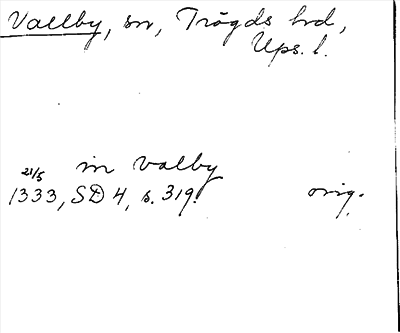 Vallby, sn, Trögds hd,
Ups. l.
in valby
23/5
1333, SD 4, s. 319. orig.